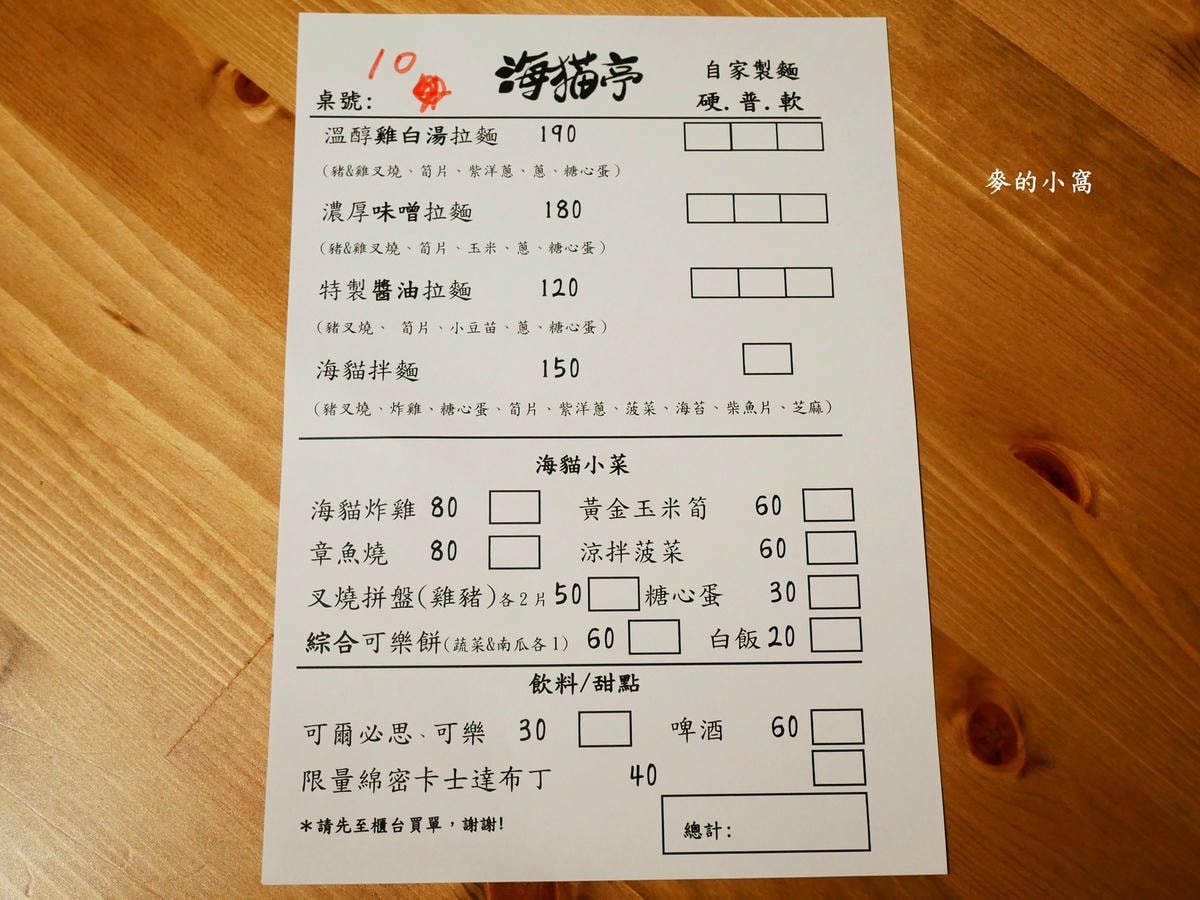 10
海貓亭
自家製麵
桌號:
硬.普.軟
溫醇雞白湯拉麵 190
(豬&雞叉燒、筍片、紫洋蔥、蔥、糖心蛋)
濃厚味噌拉麵 180
(豬&雞叉燒、筍片、玉米、蔥、糖心蛋)
特製醬油拉麵 120
(豬叉燒、 筍片、小豆苗、蔥、糖心蛋)
海貓拌麵 150
(豬叉燒、炸雞、糖心蛋、筍片、紫洋蔥、菠菜、海苔、柴魚片、芝麻)
海貓小菜
海貓炸雞 80 黃金玉米筍 60
章魚燒 80 涼拌菠菜 60
叉燒拼盤(雞豬)各2片 50 糖心蛋 30
綜合可樂餅(蔬菜&南瓜各1) 60 白飯 20
飲料/甜點
可爾必思、可樂 30 啤酒 60
限量綿密卡士達布丁 40
*請先至櫃台買單，謝謝!
總計:
麥的小窩